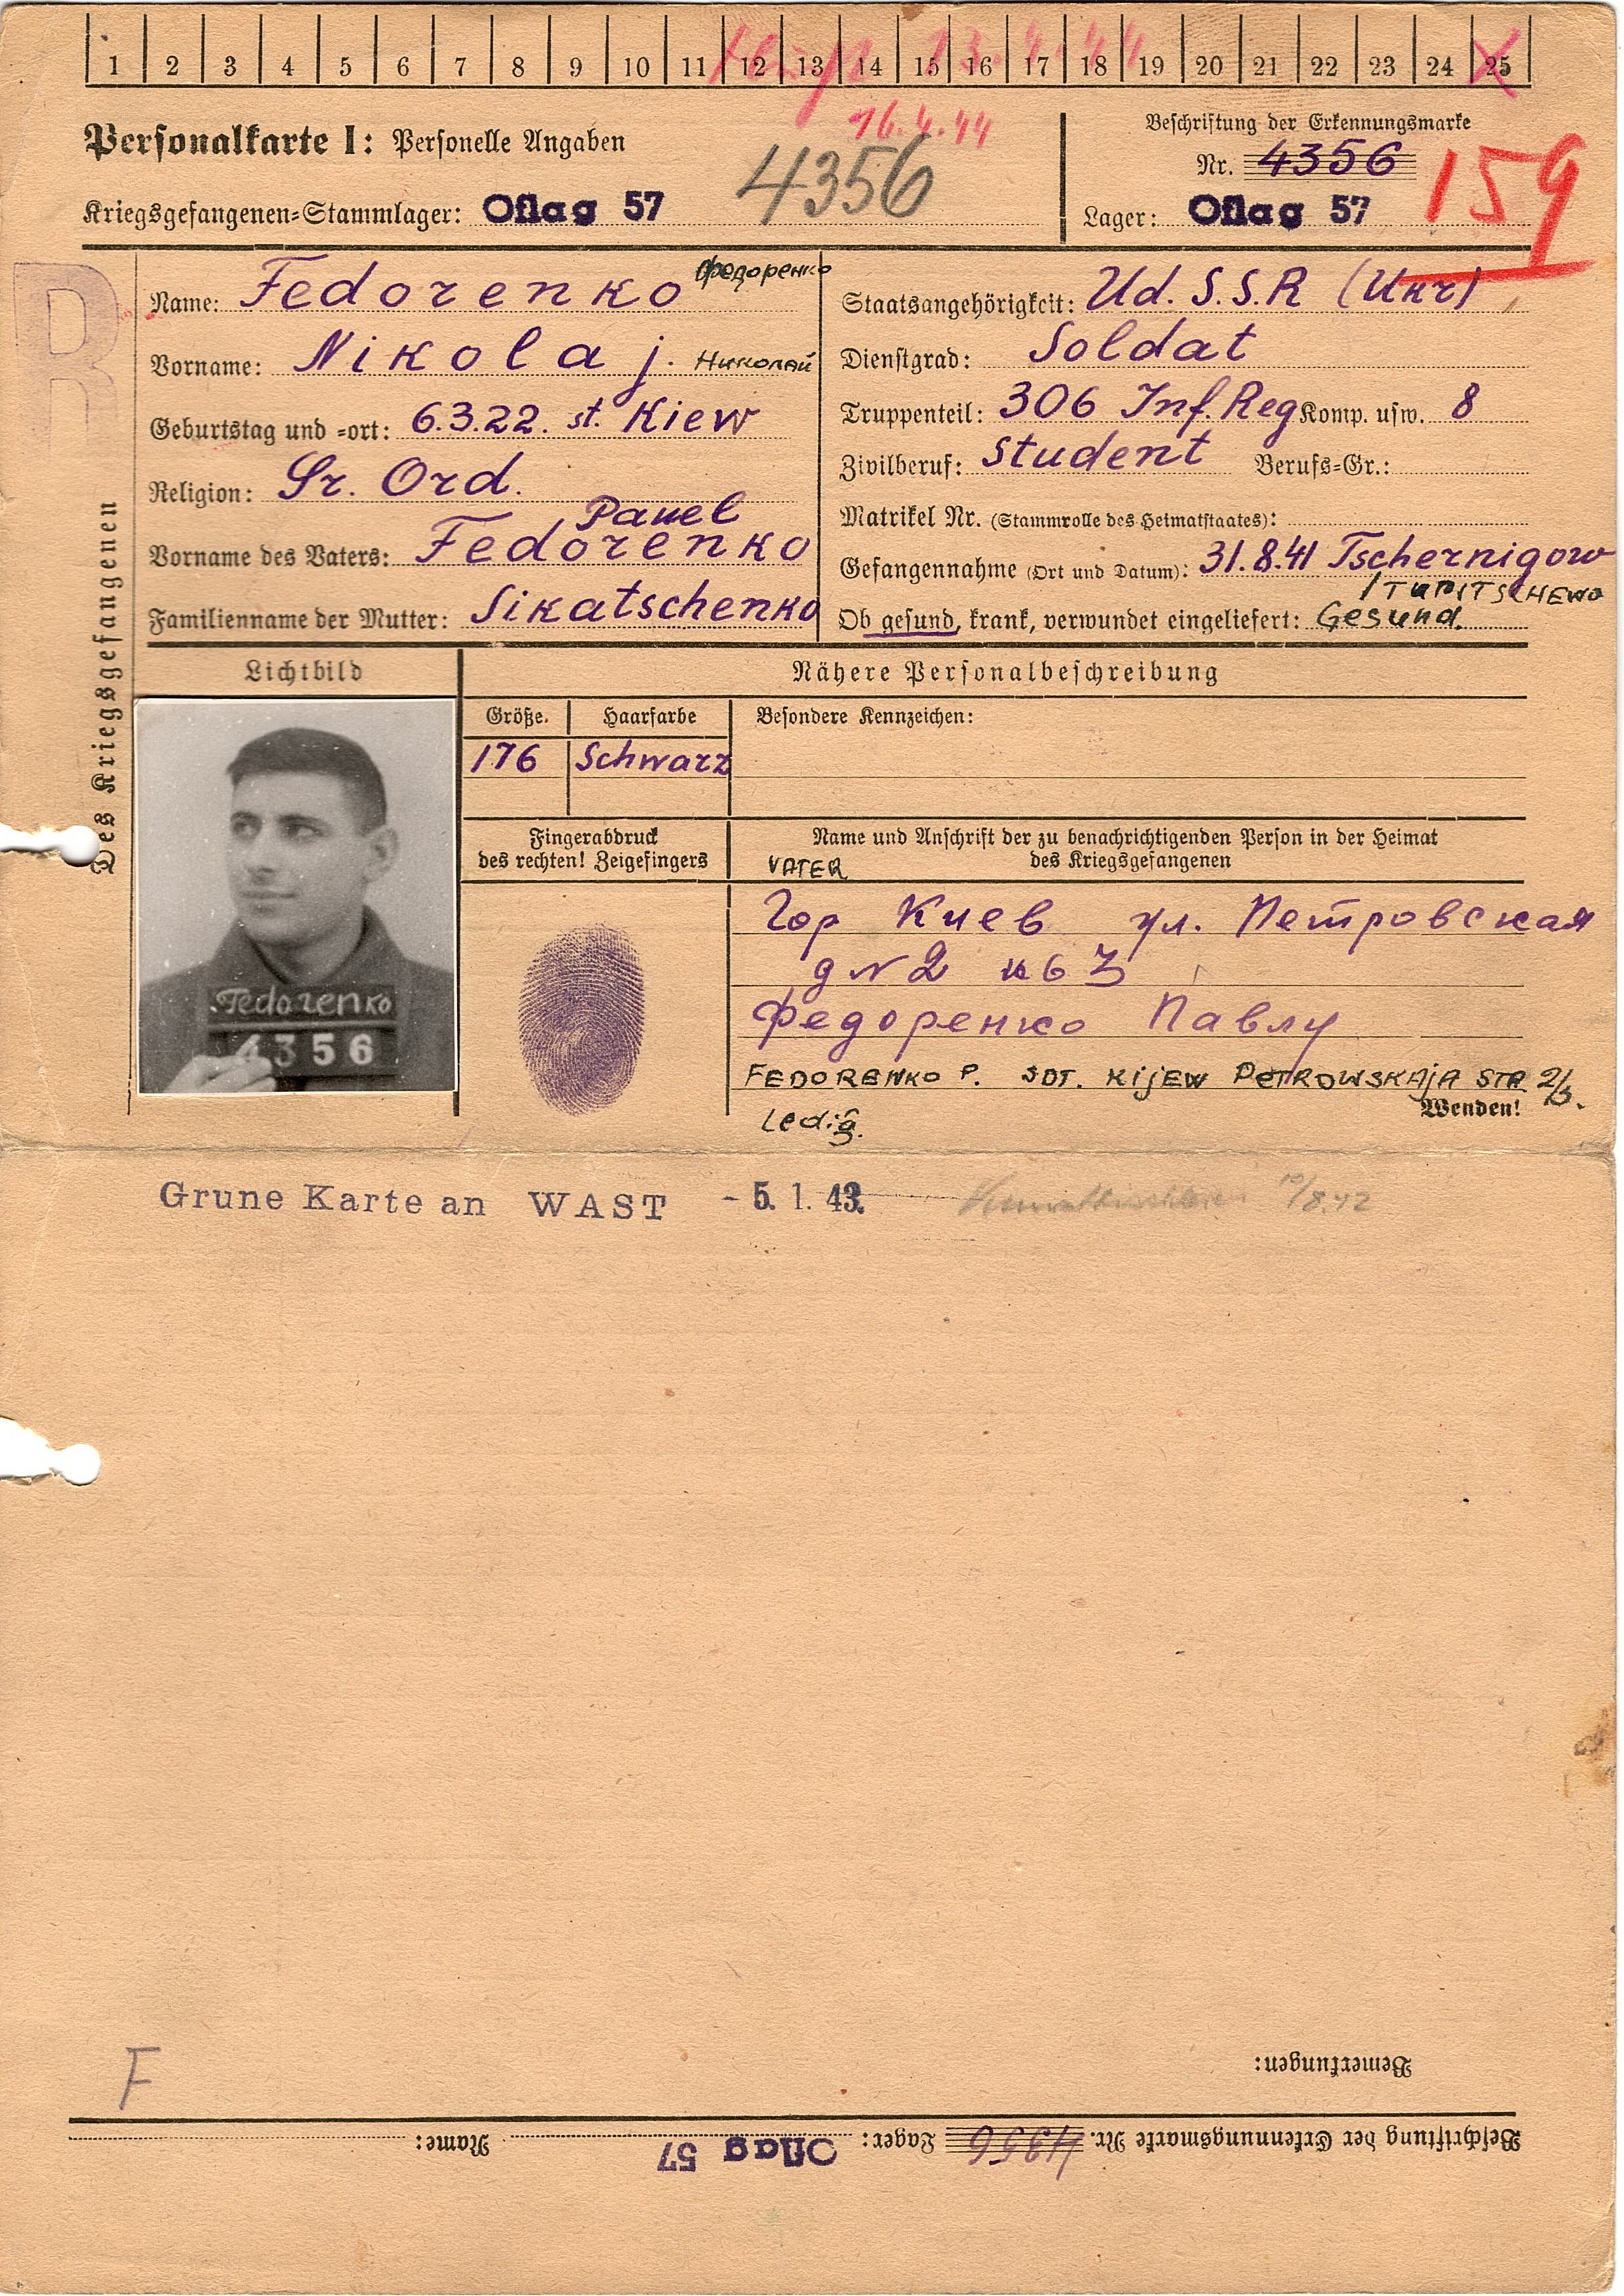 1 2 3 4 5 6 7 8 9 10 11 12 13 14 15 16 17 18 19 20 21 22 23 24 25
16.4.44
Personalkarte I: Personelle Angaben
4356
Beschriftung der Erkennungsmarke
Nr. 4356
159
Kriegsgefangenen-Stammlager: Oflag 57
Lager: Oflag 57
R
Des Kriegsgefangenen
Name: Fedorenko Федоренко
Vorname: Nikolaj. Николай
Geburtstag und -ort: 6.3.22. st. Kiew
Religion: Gr. Ord.
Pawel
Vorname des Vaters: Fedorenko
Familienname der Mutter: Sikatschenko
Staatsangehörigkeit: Ud.S.S.R (Ukr)
Dienstgrad: Soldat
Truppenteil: 306 Inf.Reg Komp. usw. 8
Zivilberuf: Student Berufs-Gr.:
Matrikel Nr. (Stammrolle des Heimatstaates):
Gefangennahme (Ort und Datum): 31.8.41 Tschernigow
Ob gesund, krank, verwundet eingeliefert: Gesund.
Lichtbild
Nähere Personalbeschreibung
Größe. Haarfarbe Besondere Kennzeichen:
176 Schwarz
Fedorenko
4356
Fingerabdruck
des rechten! Zeigefingers
Name und Anschrift der zu benachrichtigenden Person in der Heimat
des Kriegsgefangenen
VATER
Гор Киев ул. Петровская
д N 2 кв 3
Федоренко Павлу
FEDORENKO P. SDT. KIJEW PETROWSKAJA STR 2/3.
Wenden!
Ledig.
Grune Karte an WAST - 5. 1. 43.
/8.42
F
Bemerkungen:
Beschriftung der Erkennungsmarke Nr. 4356 Lager: Oflag 57 Name: